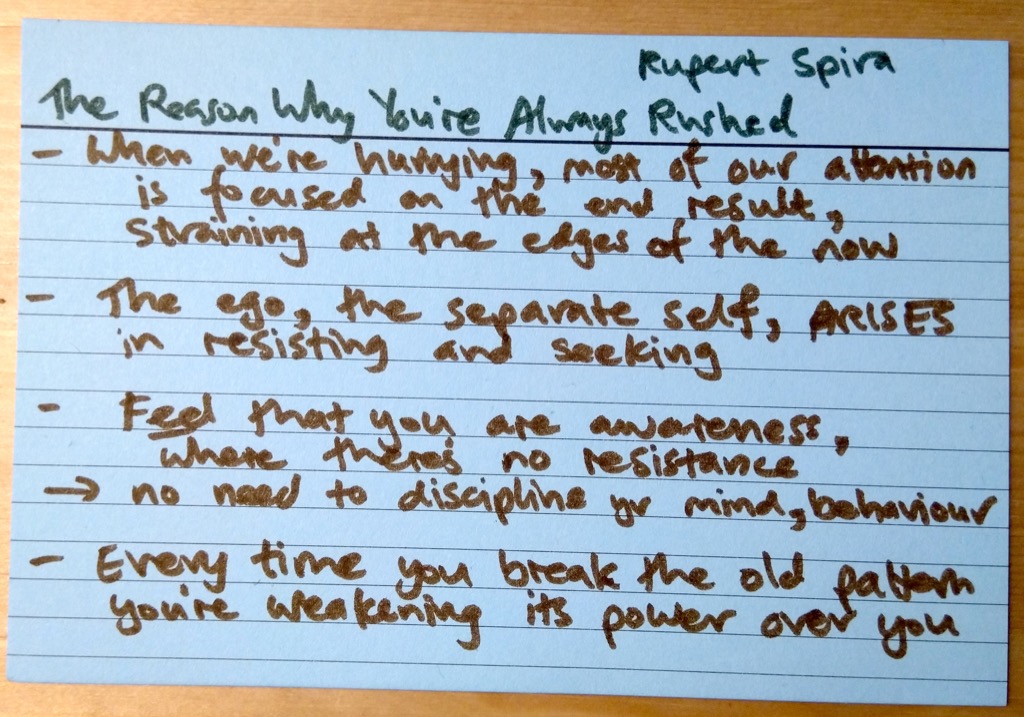 Rupert Spira
The Reason Why You're Always Rushed
- When we're hurrying, most of our attention
is focused on the end result,
straining at the edges of the now
- The ego, the separate self, ARISES
in resisting and seeking
- Feel that you are awareness,
where there's no resistance
→ no need to discipline yr mind, behaviour
- Every time you break the old pattern
you're weakening its power over you